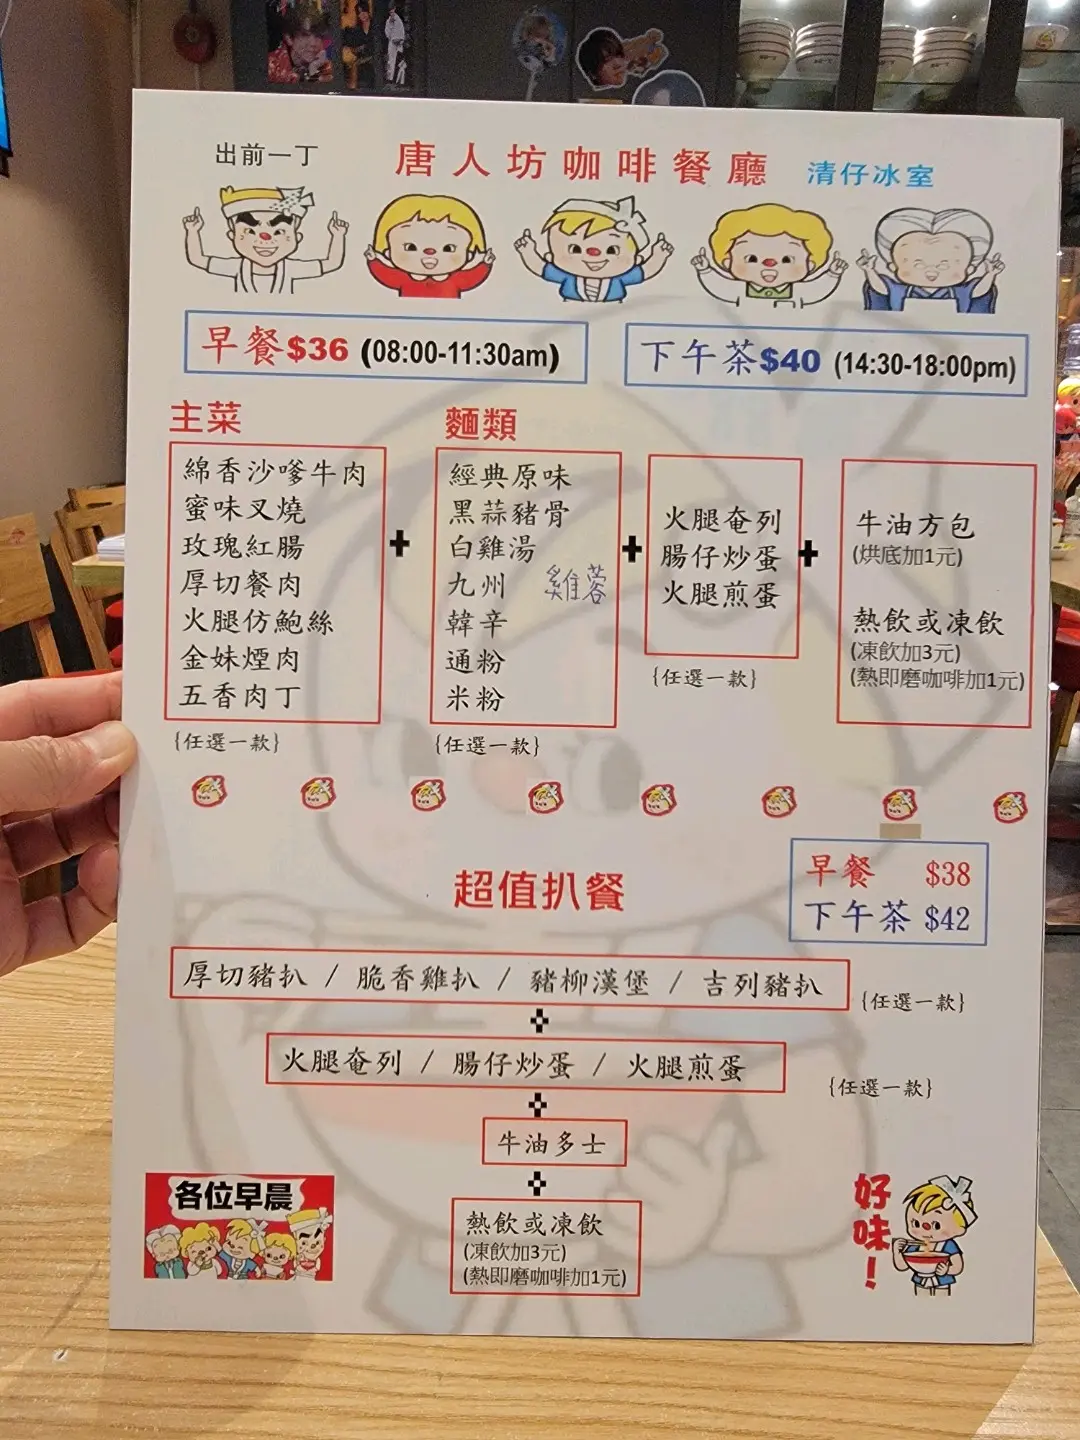 出前一丁
唐人坊咖啡餐廳
清仔冰室
早餐$36 (08:00-11:30am)
下午茶$40 (14:30-18:00pm)
主菜
綿香沙嗲牛肉
蜜味叉燒
玫瑰紅腸
厚切餐肉
火腿仿鮑絲
金妹煙肉
五香肉丁
{任選一款}
+
麵類
經典原味
黑蒜豬骨
白雞湯
九州 雞蓉
韓辛
通粉
米粉
{任選一款}
+
火腿奄列
腸仔炒蛋
火腿煎蛋
{任選一款}
+
牛油方包
(烘底加1元)
熱飲或凍飲
(凍飲加3元)
(熱即磨咖啡加1元)
超值扒餐
早餐 $38
下午茶 $42
厚切豬扒 / 脆香雞扒 / 豬柳漢堡 / 吉列豬扒
{任選一款}
火腿奄列 / 腸仔炒蛋 / 火腿煎蛋
{任選一款}
牛油多士
熱飲或凍飲
(凍飲加3元)
(熱即磨咖啡加1元)
各位早晨
好味!